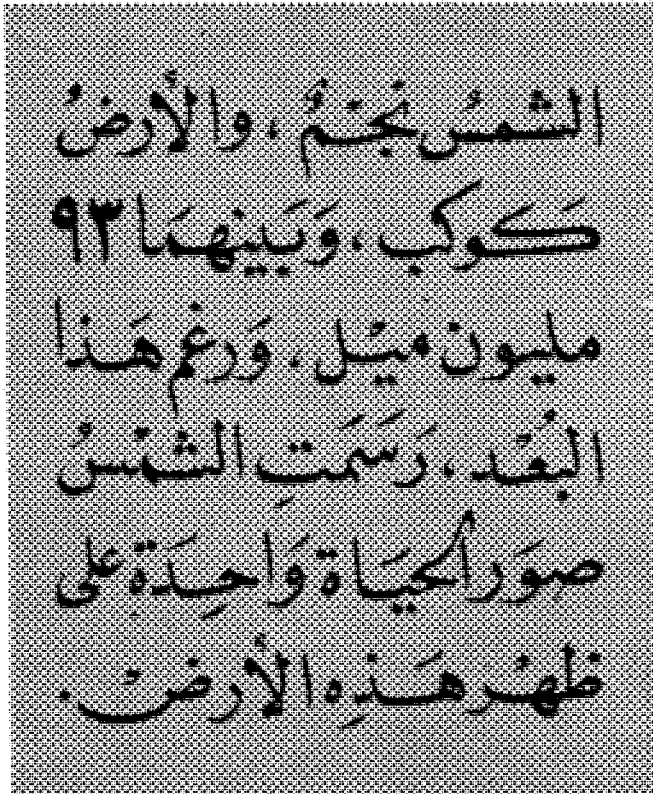 الشمسُ نجمٌ ، والأرضُ
كَوكب ، وَبَينهمَا ٩٣
مليون ميْل . وَرغم هَذا
البُعْد ، رَسَمَتِ الشمْسُ
صوَر الحيَاة وَاحِدَة على
ظهْر هَذِه الأرضْ .